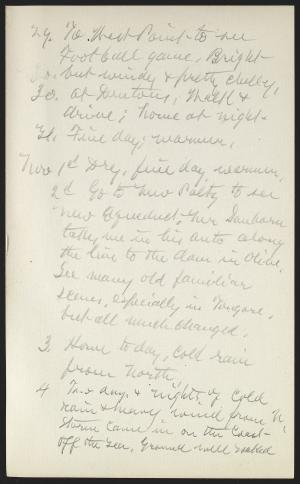 29. To West Point to see
Foot ball game, Bright
but windy & pretty chilly,
30. at Dentons; Walk &
drive; home at night.
31. Fine day; warmer,
Nov 1st Dry, fine day, warmer,
2d Go to New Paltz to see
new Aqueduct, Mr Sanborn
takes me in his auto along
the line to the dam in Olive.
See many old familiar
scenes, especially in Tongore,
but all much changed.
3 Home to day, cold rain
from North,
4 Two days & nights of cold
rain & heavy wind from N
Storm came in on the Coast
off the Sea, Ground well soaked